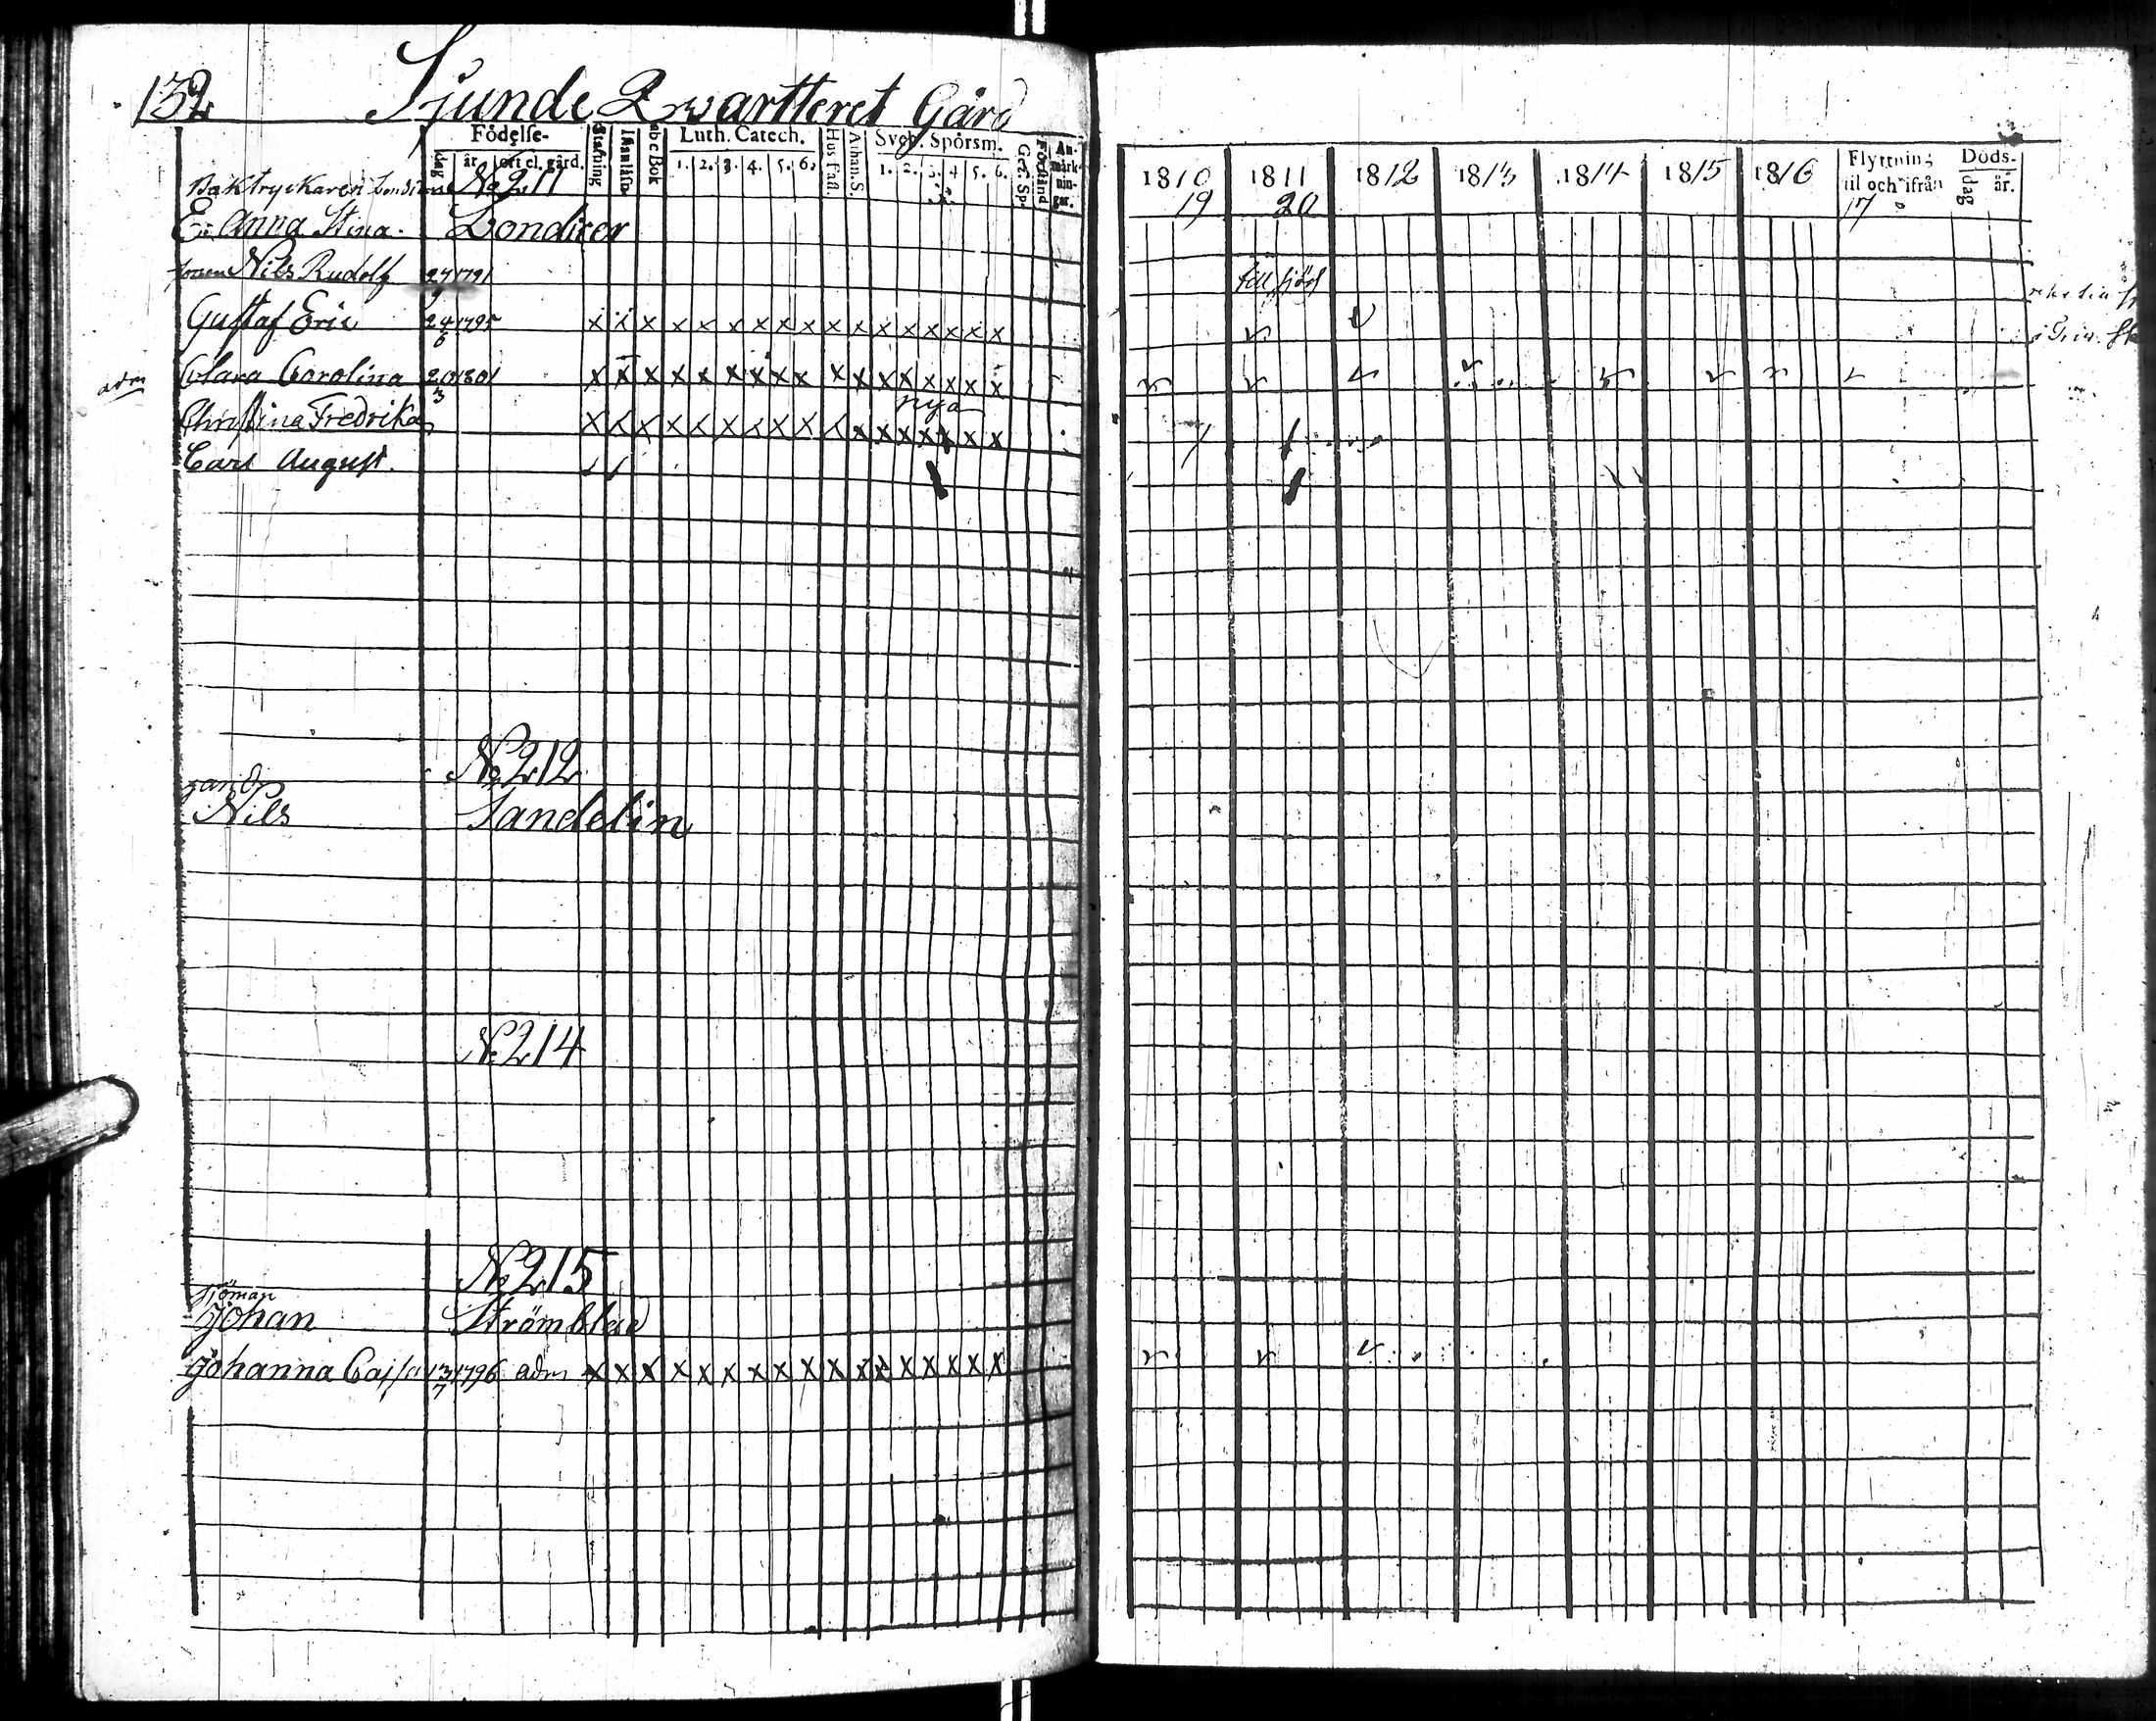 132 Sjunde Qwartteret Gård
Födelse-
dag år ort el. gård.
Stafning
Innanläsn.
abc Bok
Luth. Catech.
1. 2. 3. 4. 5. 6.
Hus Tafl.
Athan. S.
Sveb. Spörsm.
1. 2. 3. 4 5. 6.
Gez. Sp.
Förstånd
An-
märk-
nin-
gar.
1810 1811 1812 1813 1814 1815 1816
19 20 17
Flyttning
til och ifrån
Döds-
dag år.
No 211
E. Anna Stina. Londicer
Nils Rudolf 27 1791 till sjös
9
Gustaf Eric 24 1795 x x x x x x x x x x x x x x x x x
6
adm Clara Carolina 20 1801 x x x x x x x x x x x x x x x x x
3
nya
Christina Fredrika x x x x x x x x x x x x x x x x x
Carl August.
No 212
Nils Sandelin
No 214
No 215
Sjöman
Johan
Johanna Cajsa 13 1796 adm x x x x x x x x x x x x x x x x x
7